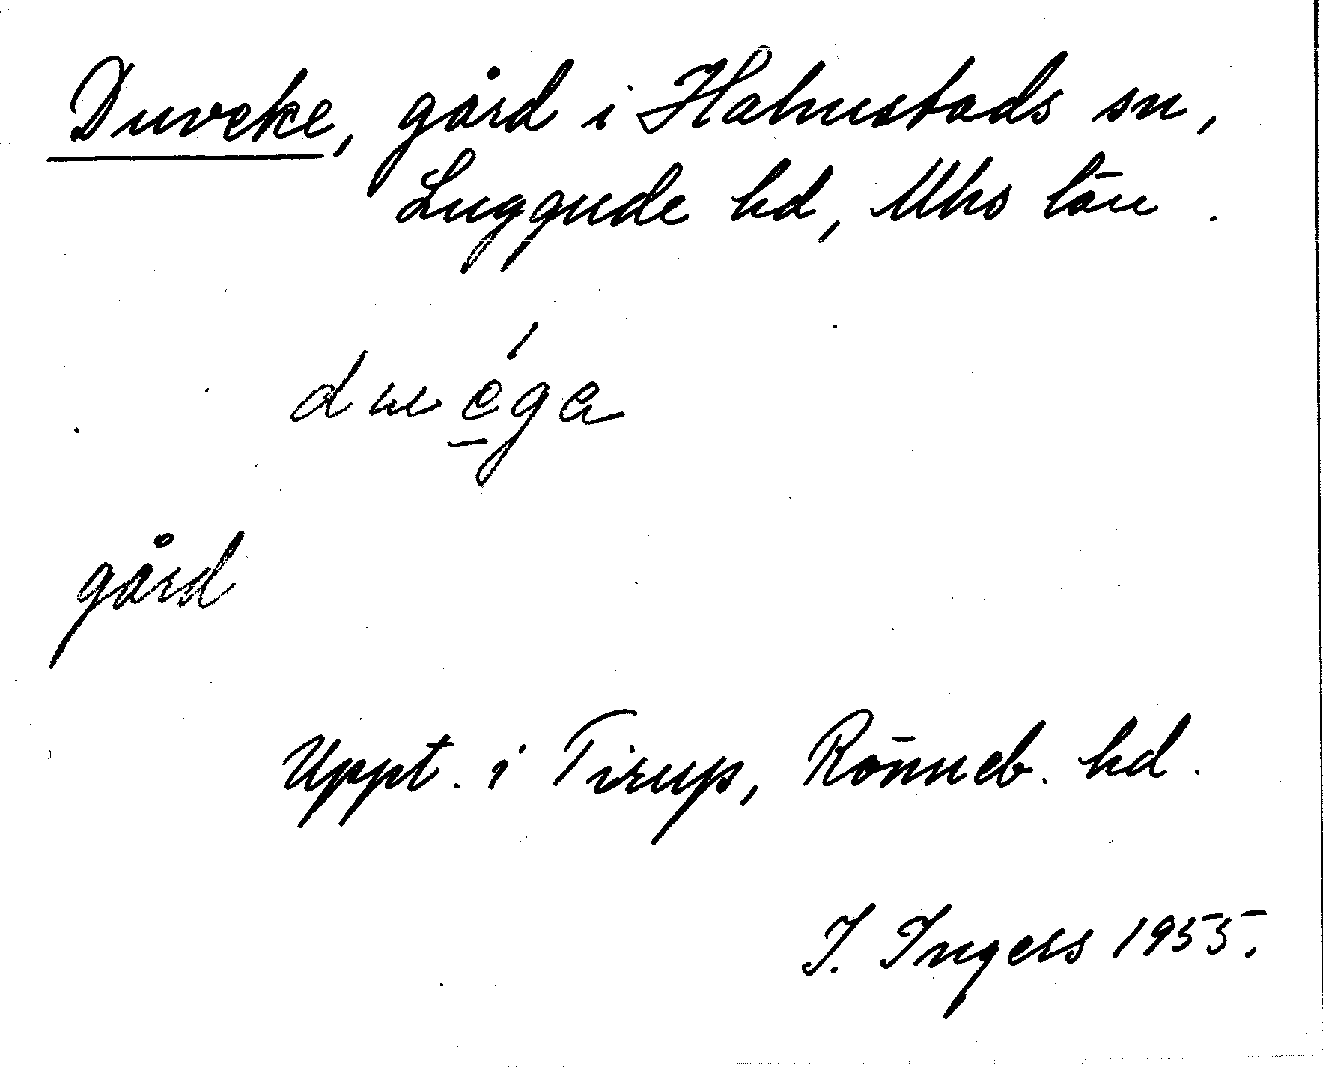 Duveke, gård i Halmstads sn,
Luggude hd, Mhs län.
gård
Uppt. i Tirup, Rönneb. hd.
I. Ingers 1955.